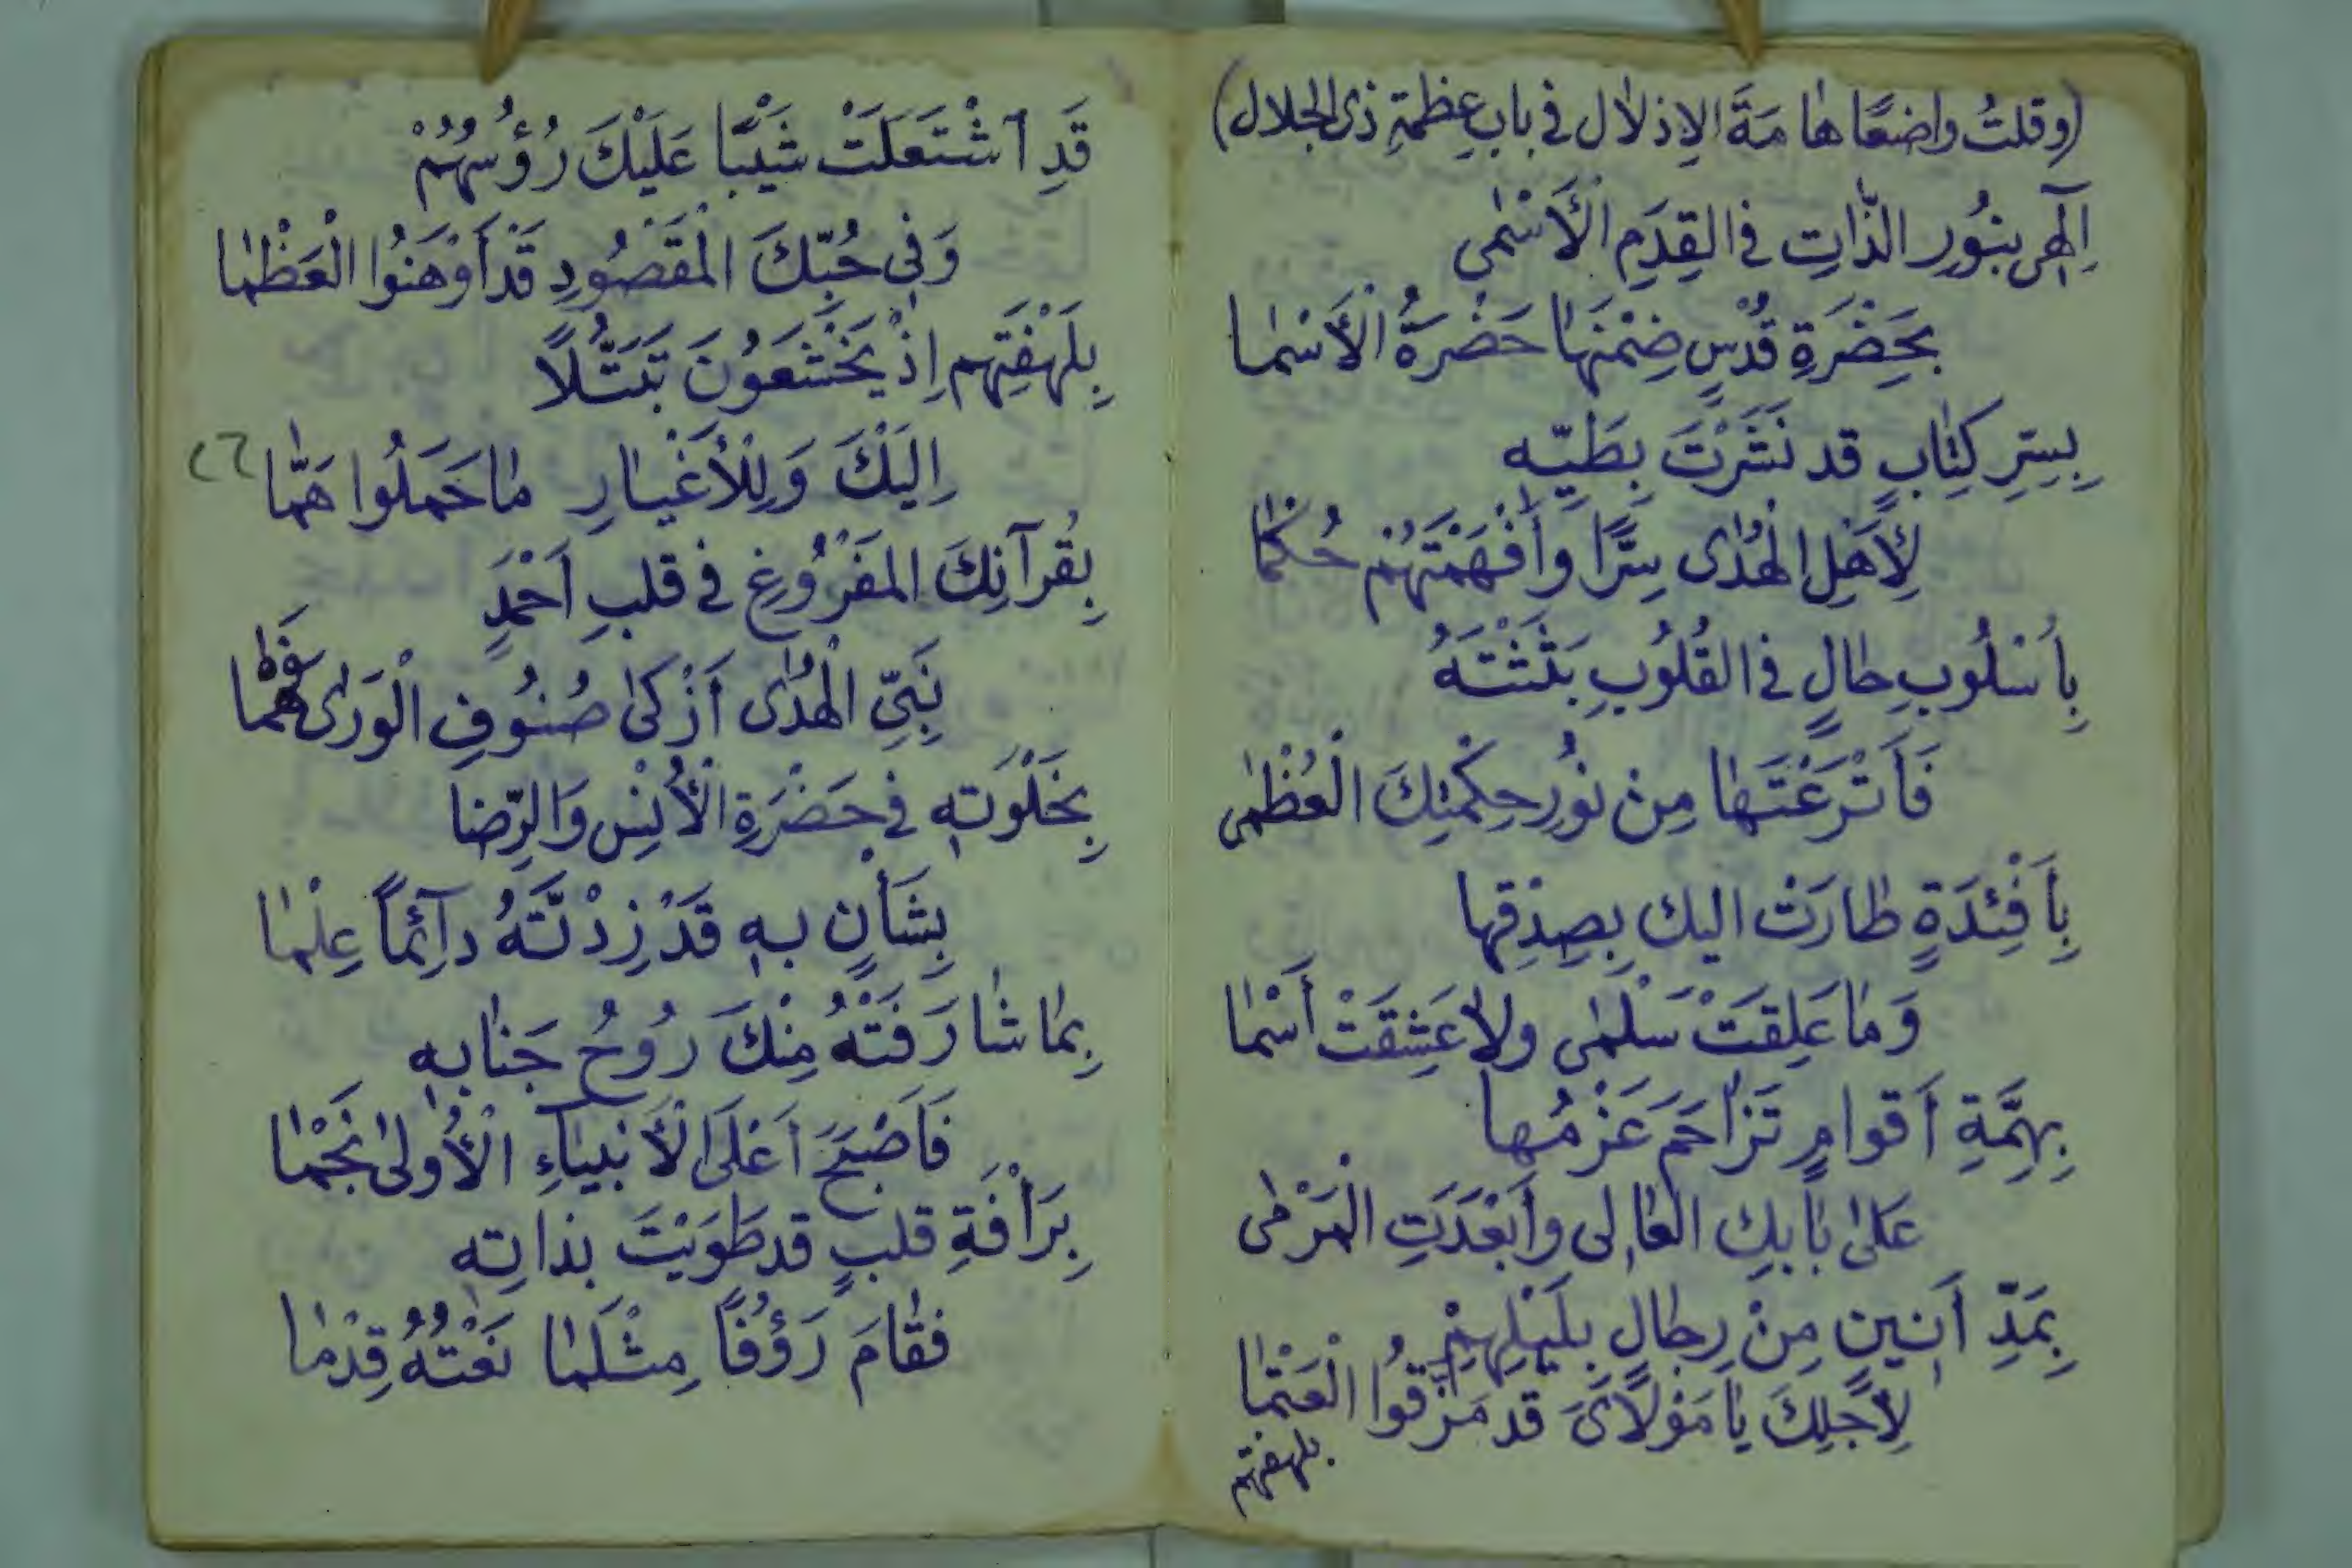 (وقلتُ واضعًا هامَةَ الاِذلال في بابِ عظمةِ ذى الجلال)
اِلٓهى بنُورِ الذّاتِ في القِدَمِ الْأَسْمٰى
بحَضْرَةِ قُدْسٍ ضِمْنَهٰا حَضْرَةُ الْأَسْمٰا
بِسِرِّ كِتٰابٍ قد نَشَرْتَ بِطَيِّه
لِأَهْلِ الْهُدٰى سِرًّا وأَفْهَمْتَهُمْ حُكْمٰا
بِأُسْلُوبِ حٰالٍ في القُلُوبِ بَثَثْتَهُ
فَأَتْرَعْتَهٰا مِنْ نُورِ حِكْمَتِكَ الْعُظْمٰى
بِأَفْئِدَةٍ طٰارَتْ اليك بِصِدْقِها
وَمٰا عَلِقَتْ سَلْمٰى ولاٰ عَشِقَتْ أَسْمٰا
بِهِمَّةِ أَقوامٍ تَزٰاحَمَ عَزْمُها
عَلىٰ بٰابِكِ العٰالى وأَبْعَدَتِ الْمَرْمٰى
بِمَدِّ أَنينٍ مِنْ رِجٰالٍ بِلَيْلِهِمْ
لِأَجلِكَ يٰا مَوْلاٰىَ قد مَزَّقُوا الْعَتْمٰا
بلهفتهم
قَدِ ٱشْتَعَلَتْ شَيْبًا عَلَيْكَ رُؤُسُهُمْ
وَفى حُبِّكَ الْمَقْصُودِ قَدْ أَوْهَنُوا الْعَظْمٰا
بِلَهْفَتِهم اِذْ يَخْشَعُونَ تَبَتُّلاً
اِلَيْكَ وَلِلْأَغْيٰارِ مٰا حَمَلُوا هَمّٰا
٢٦
بِقُرآنِكَ المَفْرُوغِ في قلبِ اَحْمَدٍ
نَبِيِّ الْهُدٰى اَزْكىٰ صُنُوفِ الْوَرٰى فَهْمٰا
بِخَلْوَتِه في حَضْرَةِ الْأُنْسِ وَالرِّضا
بِشَأْنٍ به قَدْ زِدْتَّهُ دٓائِماً عِلْمٰا
بِمٰا شٰارَفَتْهُ مِنْكَ رُوحُ جَنٰابِه
فَأَصْبَحَ اَعْلَى الْأَنْبيٰآءِ الْأُولىٰ نَجْمٰا
بِرَأْفَةِ قلبٍ قد طَوَيْتَ بذاتِه
فقٰامَ رَؤُفًا مِثْلَمٰا نَعْتُهُ قِدْمٰا